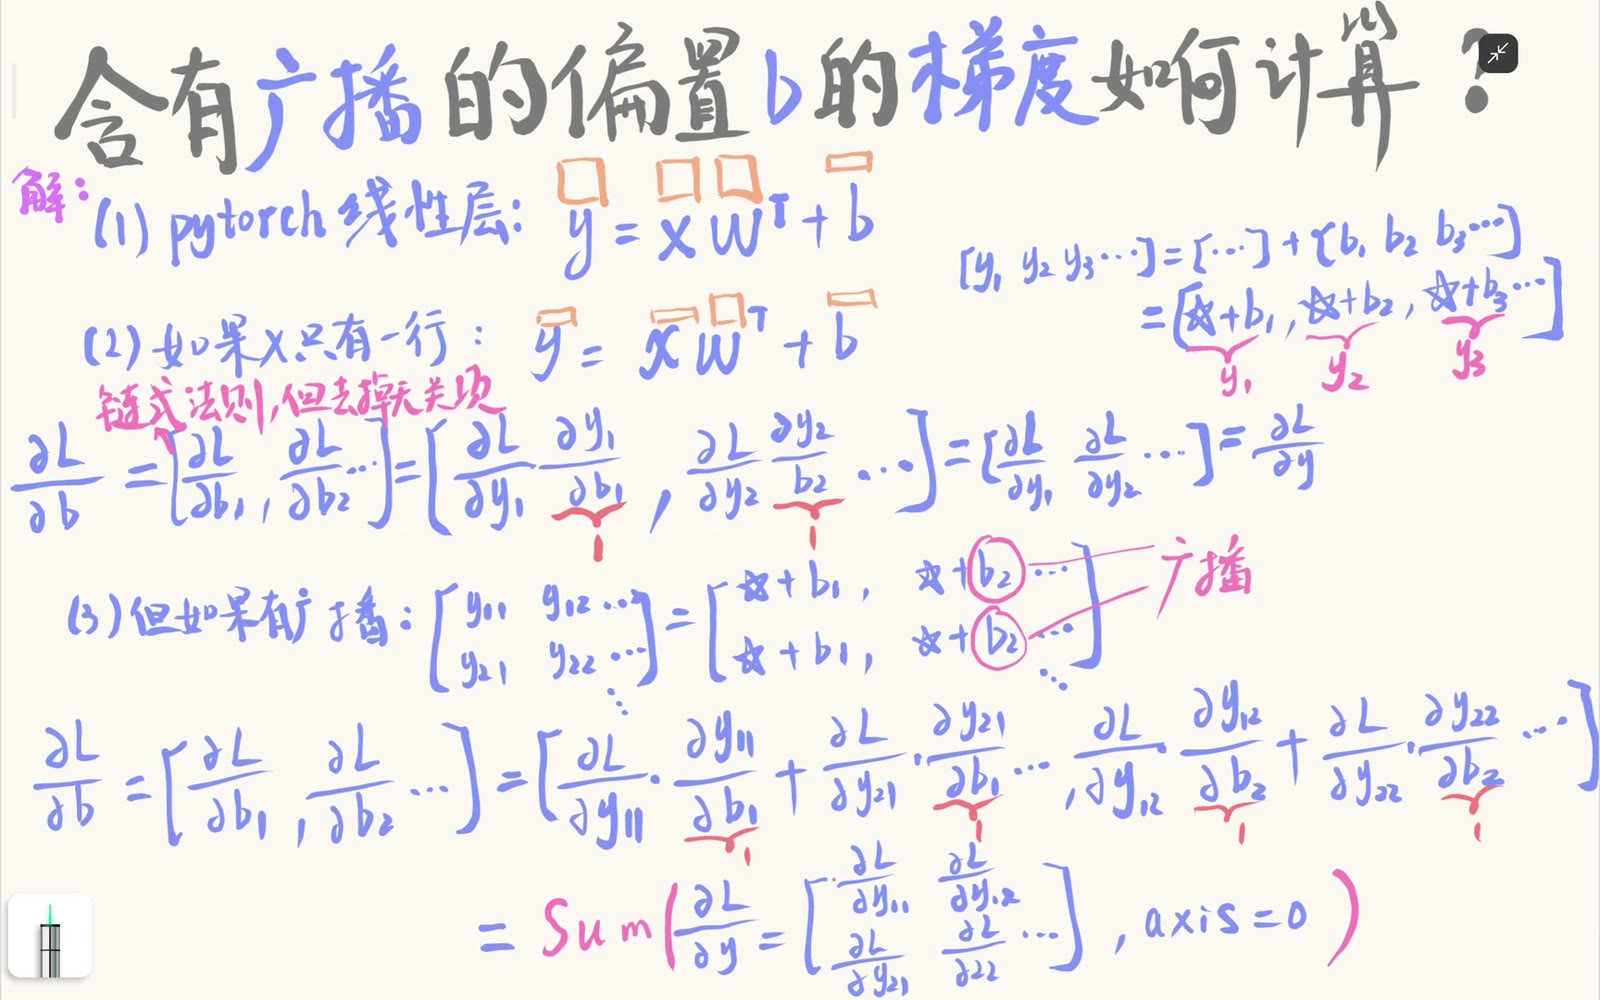 含有广播的偏置b的梯度如何计算?
解:
(1) pytorch 线性层: y = xWᵀ + b
[y₁ y₂ y₃ ⋯] = [⋯] + [b₁ b₂ b₃ ⋯]
= [☆+b₁, ☆+b₂, ☆+b₃ ⋯]
y₁ y₂ y₃
(2) 如果x只有一行: y = xWᵀ + b
链式法则,但去掉无关项
∂L/∂b = [∂L/∂b₁, ∂L/∂b₂ ⋯] = [∂L/∂y₁ ∂y₁/∂b₁, ∂L/∂y₂ ∂y₂/b₂ ⋯] = [∂L/∂y₁ ∂L/∂y₂ ⋯] = ∂L/∂y
1 1
(3) 但如果有广播: [y₁₁ y₁₂ ⋯ y₂₁ y₂₂ ⋯ ⋱] = [☆+b₁, ☆+b₂ ⋯ ☆+b₁, ☆+b₂ ⋯ ⋱] 广播
∂L/∂b = [∂L/∂b₁, ∂L/∂b₂ ⋯] = [∂L/∂y₁₁ · ∂y₁₁/∂b₁ + ∂L/∂y₂₁ · ∂y₂₁/∂b₁ ⋯, ∂L/∂y₁₂ · ∂y₁₂/∂b₂ + ∂L/∂y₂₂ · ∂y₂₂/∂b₂ ⋯]
1 1 1 1
= Sum(∂L/∂y = [∂L/∂y₁₁ ∂L/∂y₁₂ ∂L/∂y₂₁ ∂L/∂22 ⋯], axis=0)